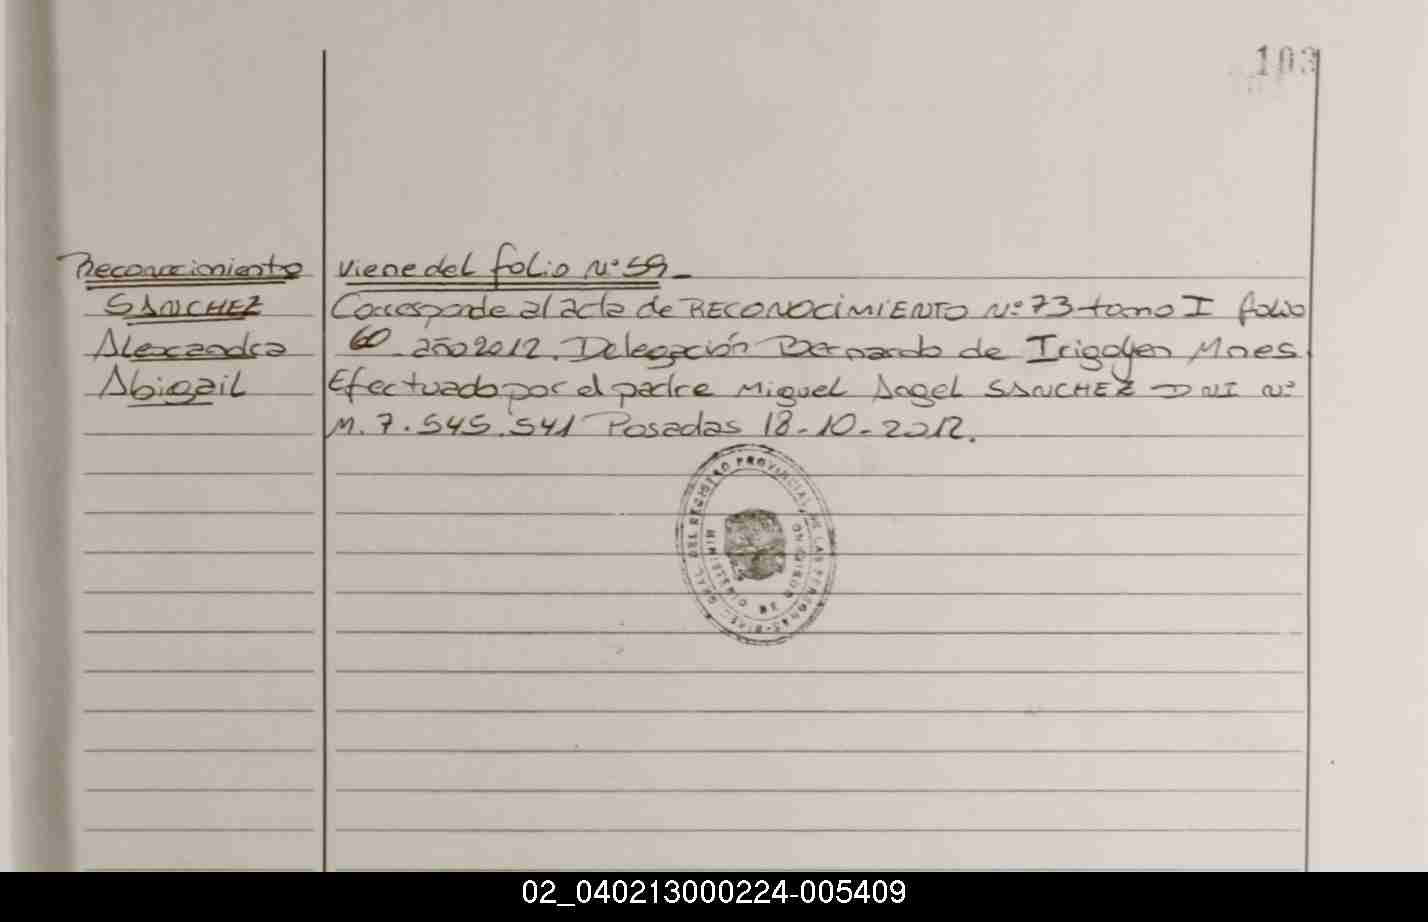 103
Reconocimiento
SANCHEZ
Alexandra
Abigail
viene del folio Nº 59_
Corresponde al acta de RECONOCIMIENTO Nº 73 tomo I folio
60 año 2012. Delegación Bernardo de Irigoyen Mnes
Efectuado por el padre Miguel Angel SANCHEZ DNI Nº
M. 7.545.541 Posadas 18-10-2012.
DEL REGISTRO PROVINCIAL DE LAS PERSONAS
02_040213000224-005409